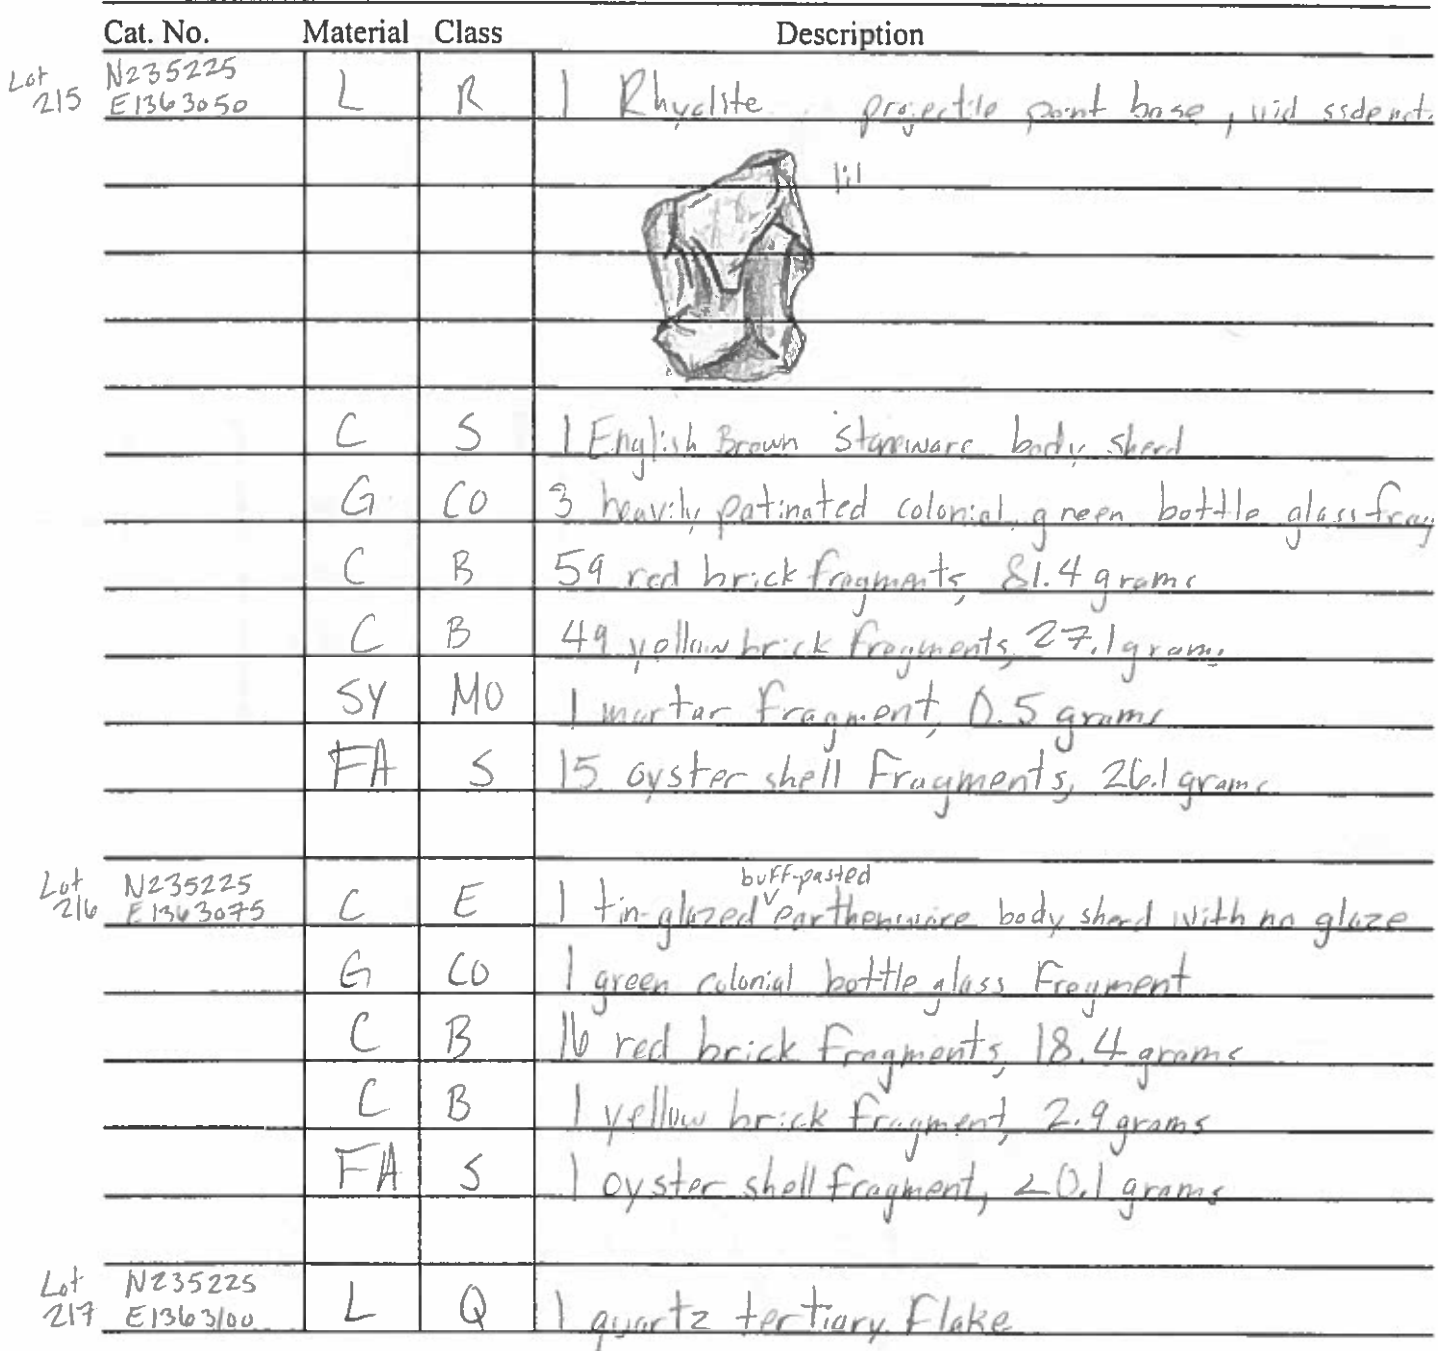 Cat. No. Material Class Description
Lot 215 N235225 E1363050 L R 1 Rhyolite projectile point base,
1:1
C S 1 English Brown Stoneware body sherd
G CO 3 heavily patinated colonial green bottle glass frag
C B 59 red brick fragments, 81.4 grams
C B 49 yellow brick fragments, 27.1 grams
SY MO 1 mortar fragment, 0.5 grams
FA S 15 oyster shell fragments, 26.1 grams
Lot 216 N235225 E1363075 C E 1 tin-glazed buff-pasted earthenware body sherd with no glaze
G CO 1 green colonial bottle glass fragment
C B 16 red brick fragments, 18.4 grams
C B 1 yellow brick fragment, 2.9 grams
FA S 1 oyster shell fragment, <0.1 grams
Lot 217 N235225 E1363100 L Q 1 quartz tertiary flake